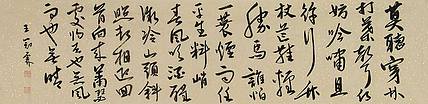 莫聽穿林
打葉聲何
妨吟嘯且
徐行竹
杖芒鞋輕
勝馬誰怕
一蓑煙雨任
平生料峭
春風吹酒醒
微冷山頭斜
照卻相迎回
首向來蕭瑟
處歸去也無風
雨也無晴